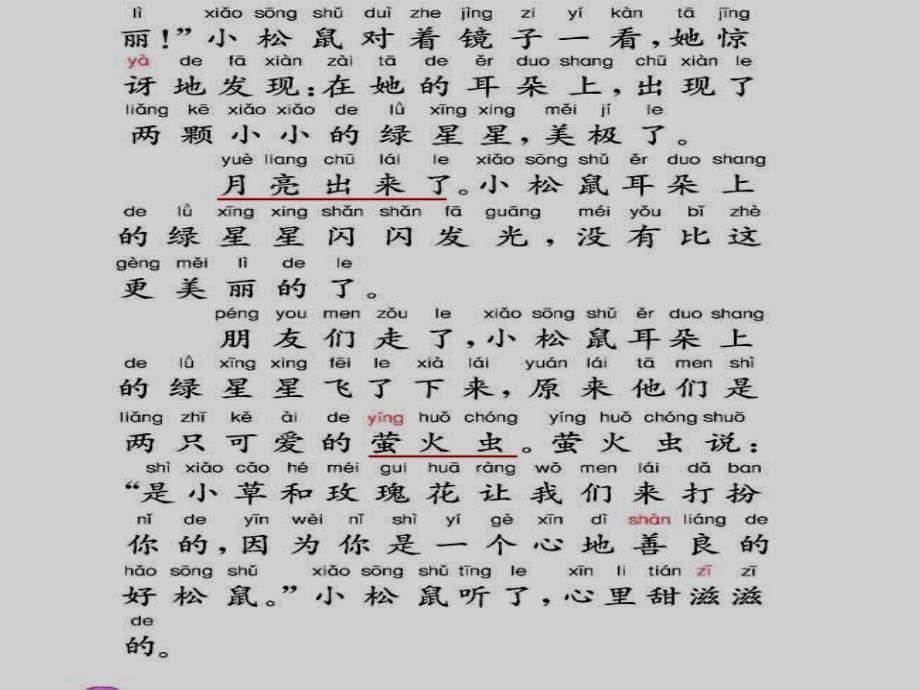 lì xiǎo sōng shǔ duì zhe jìng zi yí kàn tā jīng
丽!”小松鼠对着镜子一看,她惊
yà de fā xiàn zài tā de ěr duo shang chū xiàn le
讶地发现:在她的耳朵上,出现了
liǎng kē xiǎo xiǎo de lǜ xīng xing měi jí le
两颗小小的绿星星,美极了。
yuè liang chū lái le xiǎo sōng shǔ ěr duo shang
月亮出来了。小松鼠耳朵上
de lǜ xīng xing shǎn shǎn fā guāng méi yǒu bǐ zhè
的绿星星闪闪发光,没有比这
gèng měi lì de le
更美丽的了。
péng you men zǒu le xiǎo sōng shǔ ěr duo shang
朋友们走了,小松鼠耳朵上
de lǜ xīng xing fēi le xià lái yuán lái tā men shì
的绿星星飞了下来,原来他们是
liǎng zhī kě ài de yíng huǒ chóng yíng huǒ chóng shuō
两只可爱的萤火虫。萤火虫说:
shì xiǎo cǎo hé méi gui huā ràng wǒ men lái dǎ ban
“是小草和玫瑰花让我们来打扮
nǐ de yīn wèi nǐ shì yí gè xīn dì shàn liáng de
你的,因为你是一个心地善良的
hǎo sōng shǔ xiǎo sōng shǔ tīng le xīn li tián zī zī
好松鼠。”小松鼠听了,心里甜滋滋
de
的。